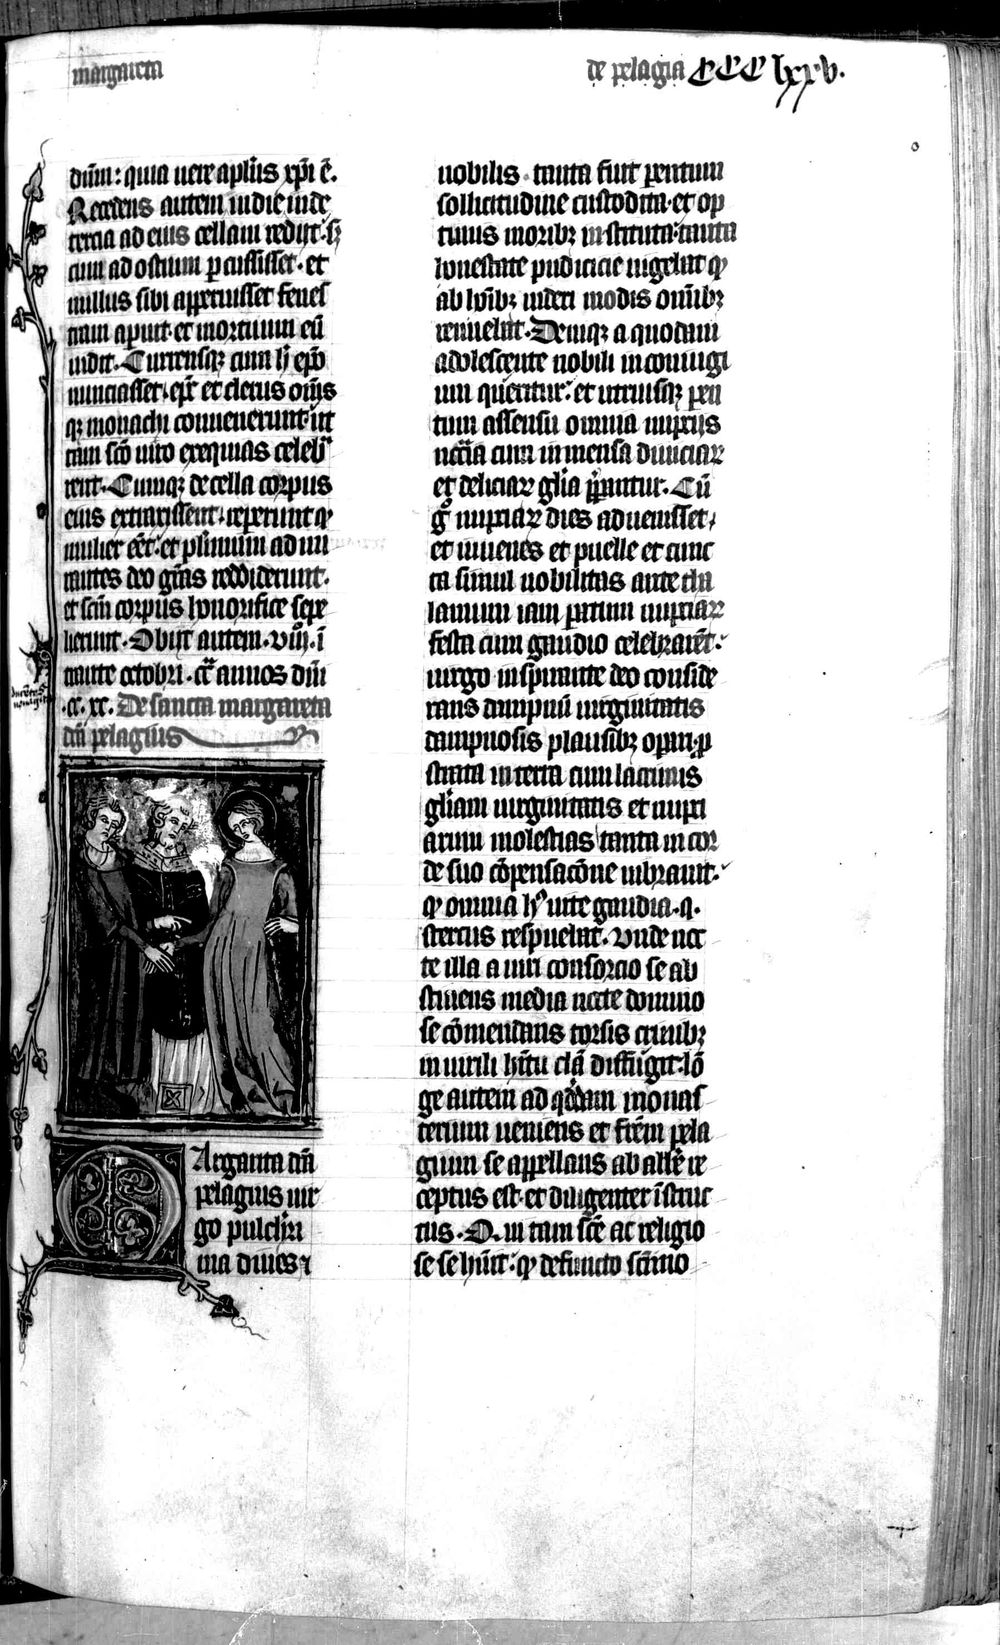 margareta
de pelagia CCClxxv.
dn̄m: quia uere apl̄us xp̄i ē.
Recedens autem in die inde
tercia ad eius cellam redijt. sꝫ
cum ad ostium ꝑcussisset. et
nullus sibi apperuisset fenes
tram aperuit et mortuum eū
uidit. Currensqꝫ cum h̄ ep̄o
nunciasset. ep̄c et clerus om̄s
qꝫ monachi conuenerunt. ut
tam sc̄o uiro exequias celebᵃ
rent. Cumqꝫ de cella corpus
eius extraxissent. repererunt ꝙ
mulier eēt. et plimum admi
rantes deo gr̄as reddiderunt.
et sc̄m corpus honorifice sepe
lierunt. Obijt autem. viij. ī
trante octobri. cᵃ annos dn̄i
.cc. xc. De sancta margareta
dc̄ā pelagius
Argarita dc̄ā
pelagius uir
go pulcher̄i
ma diues ⁊
nobilis. tanta fuit parentum
sollicitudine custodita. et op
timis moribꝫ instituta. tanta
honestate pudicicie uigebat ꝙ
ab hōibꝫ uideri modis om̄ibꝫ
rennebat. Deniqꝫ a quodam
adolescente nobili in coniugi
um queritur. et utriusqꝫ paren
tum assensu omnia nupcijs
neccīa cum immensa diuiciaꝝ
et deliciaꝝ gl̄ia p̄parantur. Cū
gͦ nupciaꝝ dies aduenisset,
et iuuenes et puelle et cunc
ta simul nobilitas ante tha
lamum iam paratum nupciaꝝ
festa cum gaudio celebrarēt.
uirgo inspirante deo conside
rans dampnū uirginitatis
dampnosis plausibꝫ oparari. ꝓ
strata in terra cum lacrimis
gl̄iam uirginitatis et nupci
arum molestias tanta in cor
de suo cōpensacōne librauit.
ꝙ omnia hͦ uite gaudia. q.
stercus respuebat. Unde noc
te illa a uiri consorcio se ab
stinens media nocte domino
se cōmendans tonsis crinibꝫ
in uirili hītu clā diffugit. lō
ge autem ad qᵒddam monas
terium ueniens et fr̄em pela
gium se appellans ab abbe re
ceptus est. et diligenter īstruc
tus. Qui tam sc̄e ac religio
se se hūit. ꝙ defuncto sc̄imo